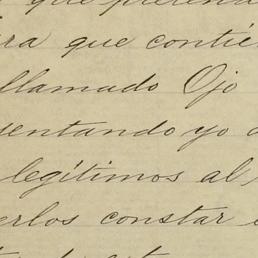 que pretend
ra que contie
llamado Ojo
sentando yo
legítimos al
erlos constar